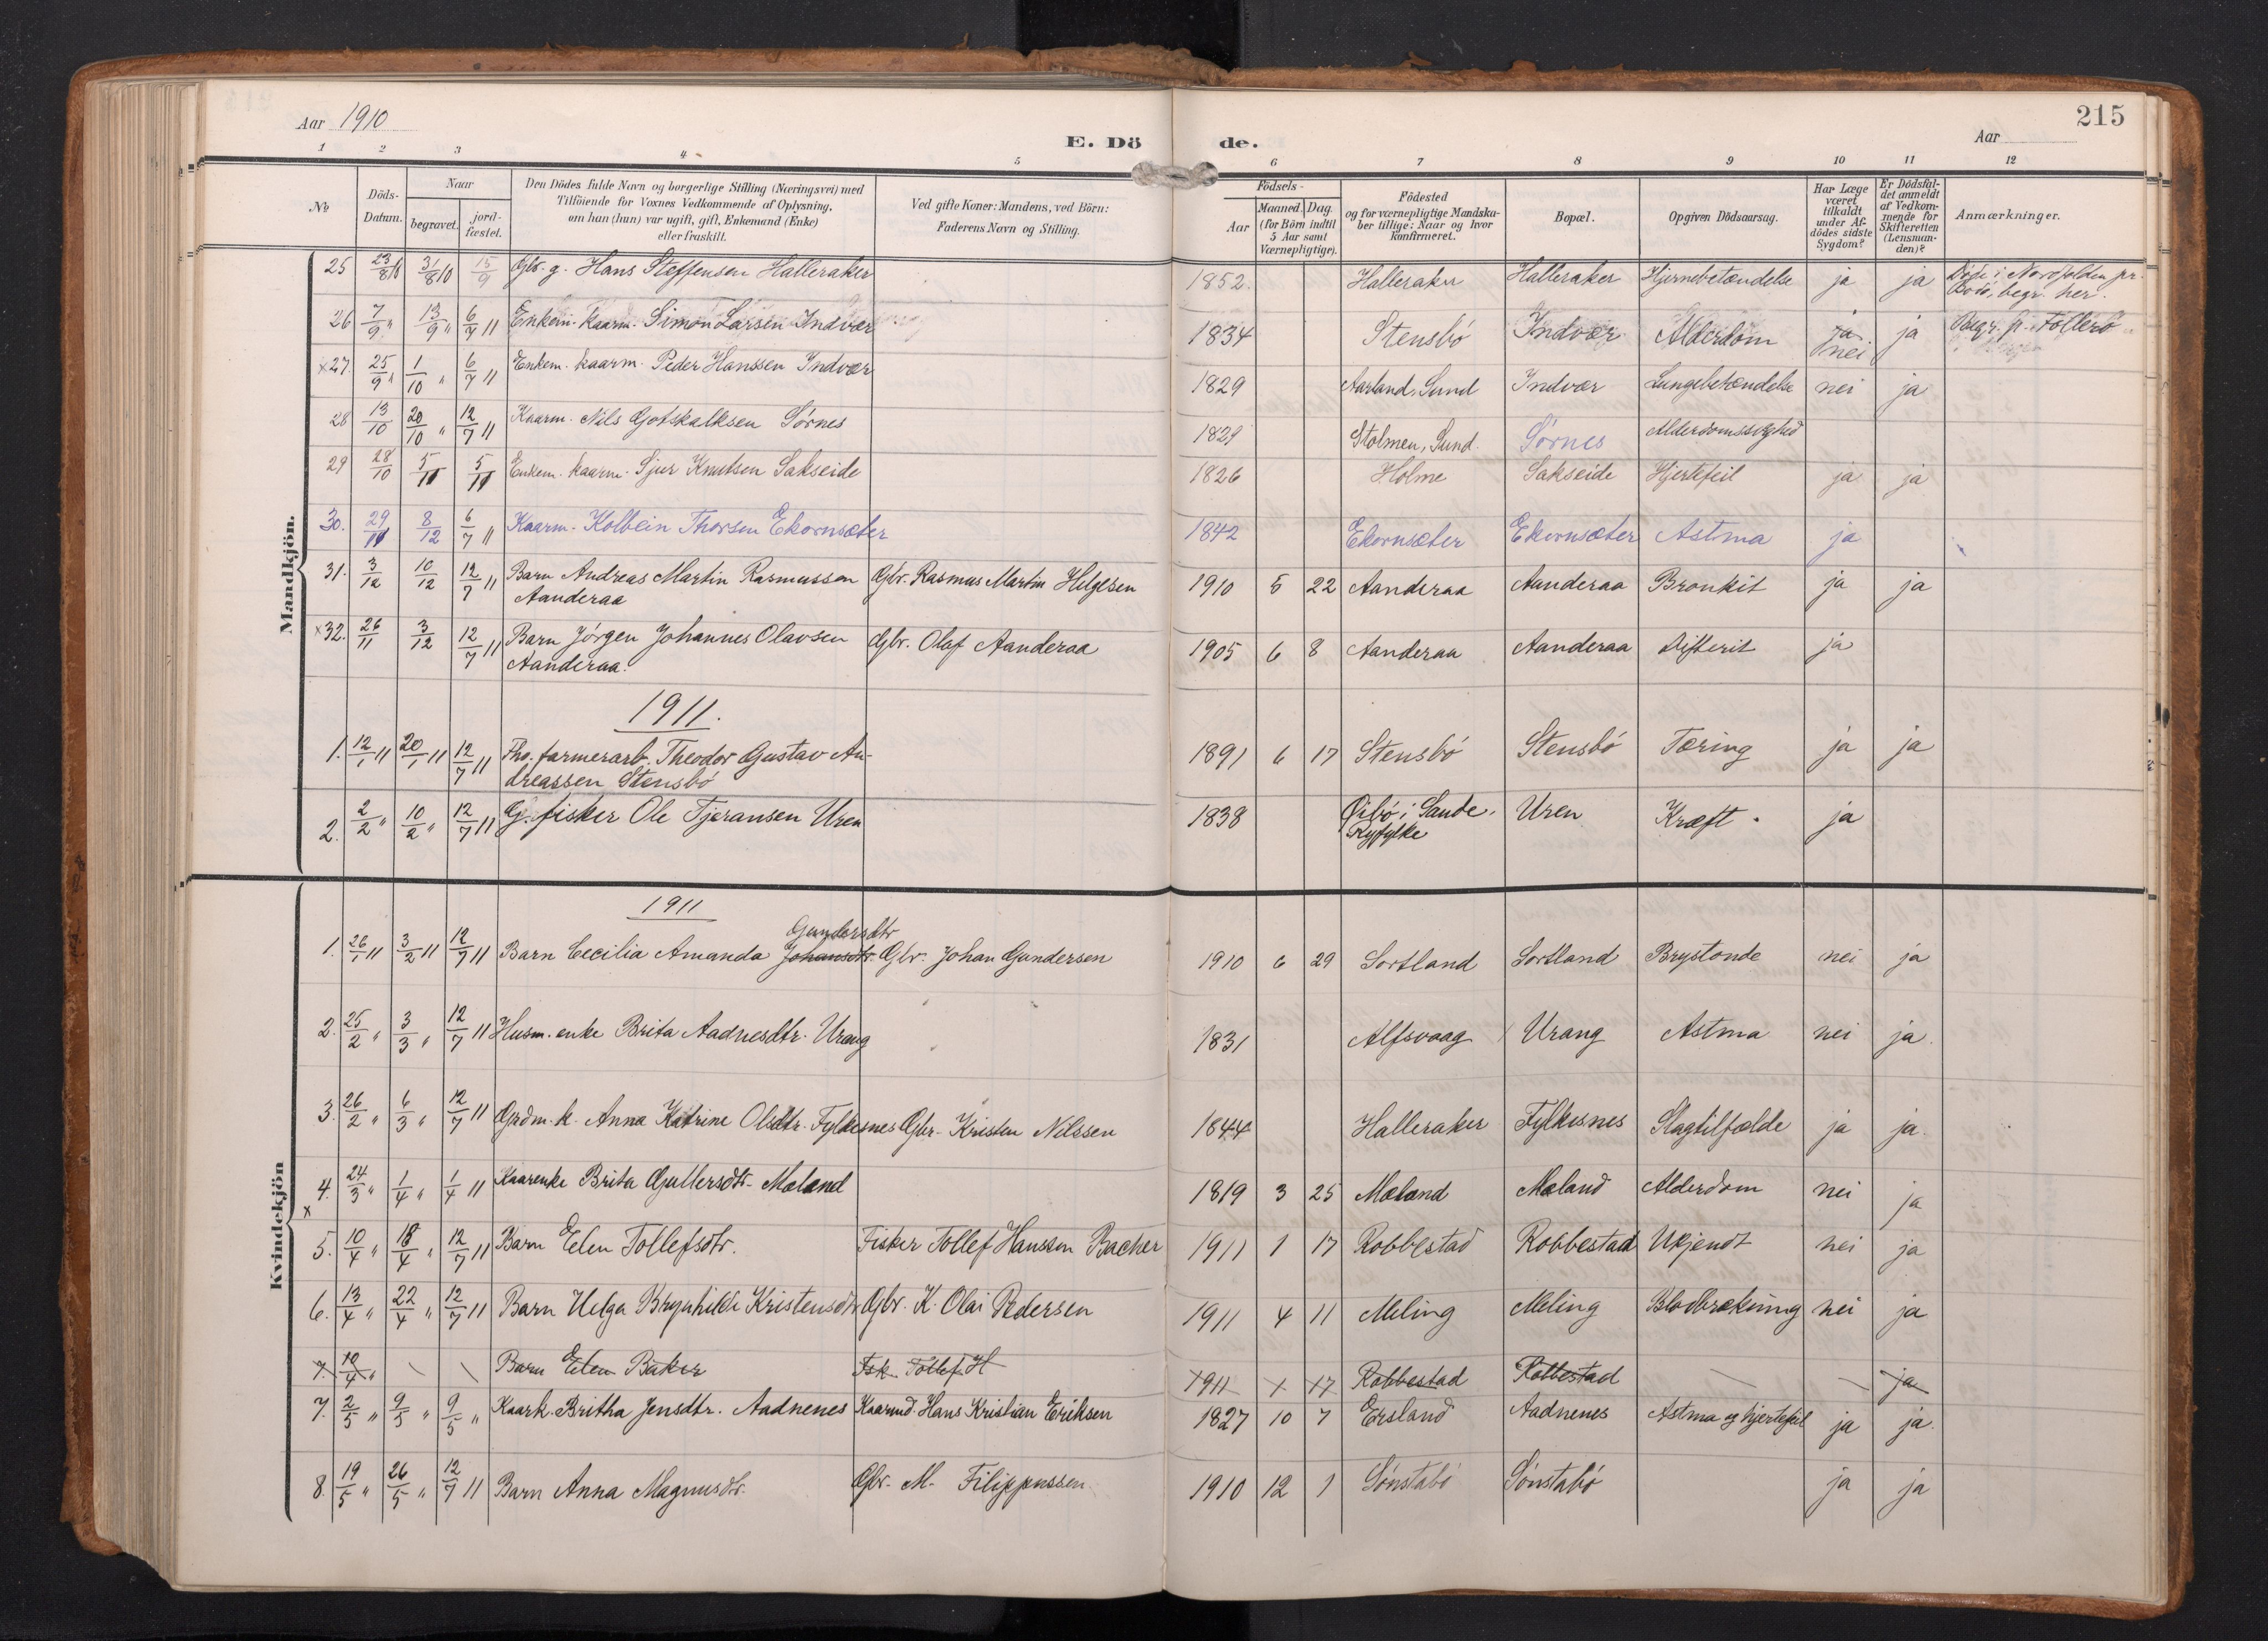 215
Aar 1910
E. Dö de.
Aar
1 2 3 4 5 6 7 8 9 10 11 12
№ Döds-Datum. Naar begravet. jord-fæstet. Den Dödes fulde Navn og borgerlige Stilling (Næringsvei) med Tilföiende for Voxnes Vedkommende af Oplysning, om han (hun) var ugift, gift, Enkemand (Enke) eller fraskilt. Ved gifte Koner: Mandens, ved Börn: Faderens Navn og Stilling. Födsels- Aar Maaned. Dag. (for Börn indtil 5 Aar samt Værnepligtige). Födested og for værnepligtige Mandskaber tillige: Naar og hvor konfirmeret. Bopæl. Opgiven Dödsaarsag. Har Læge været tilkaldt under Afdödes sidste Sygdom? Er Dödsfaldet anmeldt af Vedkommende for Skifteretten (Lensmanden)? Anmærkninger.
Mandkjön.
25 23/8 10 31/8 10 15/9 Gbr. g. Hans Steffensen Halleraker 1852. Halleraker Halleraker Hjernebetændelse ja ja Döde i Nordfolden pr.
Bodö, begr. her.
26 7/9 " 13/9 " 6/7 11 Enkem. kaarm. Simon Larsen Indvær 1834 Stensbó Indvær Alderdom ja nei ja Begr. p. Folderö
×27. 25/9 " 1/10 " 6/7 11 Enkem. kaarm. Peder Hanssen Indvær 1829 Aarland, Sund Indvær Lungebetændelse nei ja
28 13/10 20/10 " 12/7 11 Kaarm. Nils Gotskalksen Sørnes 1829 Stolmen, Sund. Sørnes Alderdomssvaghed
29 28/10 5/11 5/11 Enkem. kaarm. Sjur Knutsen Sakseide 1826 Holme Sakseide Hjertefeil ja ja
30. 29/11 8/12 6/7 11 Kaarm. Kolbein Thorsen Ekornsæter 1842 Ekornsæter Ekornsæter Astma ja
31. 3/12 10/12 12/7 11 Barn Andreas Martin Rasmussen Gbr. Rasmus Martin Helgesen 1910 5 22 Aanderaa Aanderaa Bronkit ja ja
Aanderaa
×32. 26/11 3/12 12/7 11 Barn Jørgen Johannes Olavsen Gbr. Olaf Aanderaa 1905 6 8 Aanderaa Aanderaa Difterit ja
Aanderaa.
1911.
1. 12/1 11 20/1 11 12/7 11 Fho. farmerarb. Theodor Gustav An-
dreassen Stensbó 1891 6 17 Stensbó Stensbó Tæring ja ja
2. 2/2 " 10/2 " 12/7 11 G. fisker Ole Tjeransen Uren 1838 Öibó i Sande. Uren Kræft. ja
Ryfylke
Kvindekjön
1911
Gundersdtr
1. 26/1 11 3/2 11 12/7 11 Barn Cecilia Amanda Johansdtr. Gbr. Johan Gundersen 1910 6 29 Sortland Sortland Brystonde nei ja
2. 25/2 " 3/3 " 12/7 11 Husm. enke Brita Aadnesdtr. Urang 1831 Alfsvaag Urang Astma nei ja.
3. 26/2 " 6/3 " 12/7 11 Grdm. k. Anna Katrine Olsdtr. Fylkesnes Gbr. Kristen Nilssen 1844 Halleraker Fylkesnes Slagtilfælde ja ja.
×4. 24/3 " 1/4 " 1/4 11 Kaarenke Brita Guttersdtr. Mæland 1819 3 25 Mæland Mæland Alderdom nei ja
5. 10/4 " 18/4 " 12/7 11 Barn Elen Tollefsdtr. Fisker Tollef Hanssen Bacher 1911 1 17 Robbestad Robbestad Ukjendt nei ja
6. 13/4 " 22/4 " 12/7 11 Barn Helga Brynhilde Kristensdtr Gbr. K. Olai Pedersen 1911 4 11 Meling Meling Blodbrækning nei ja
7. 10/4 " Barn Elen Baker Fsk. Tollef H 1911 1 17 Robbestad Robbestad ja
7. 2/5 " 9/5 " 9/5 " Kaark. Britha Jensdtr. Aadnenes Kaarmd. Hans Kristian Eriksen 1827 10 7 Ersland Aadnenes Astma og hjertefeil ja ja.
8. 19/5 " 26/5 " 12/7 11 Barn Anna Magnusdtr. Gbr. M. Filippussen 1910 12 1 Sónstabó Sónstabó ja ja